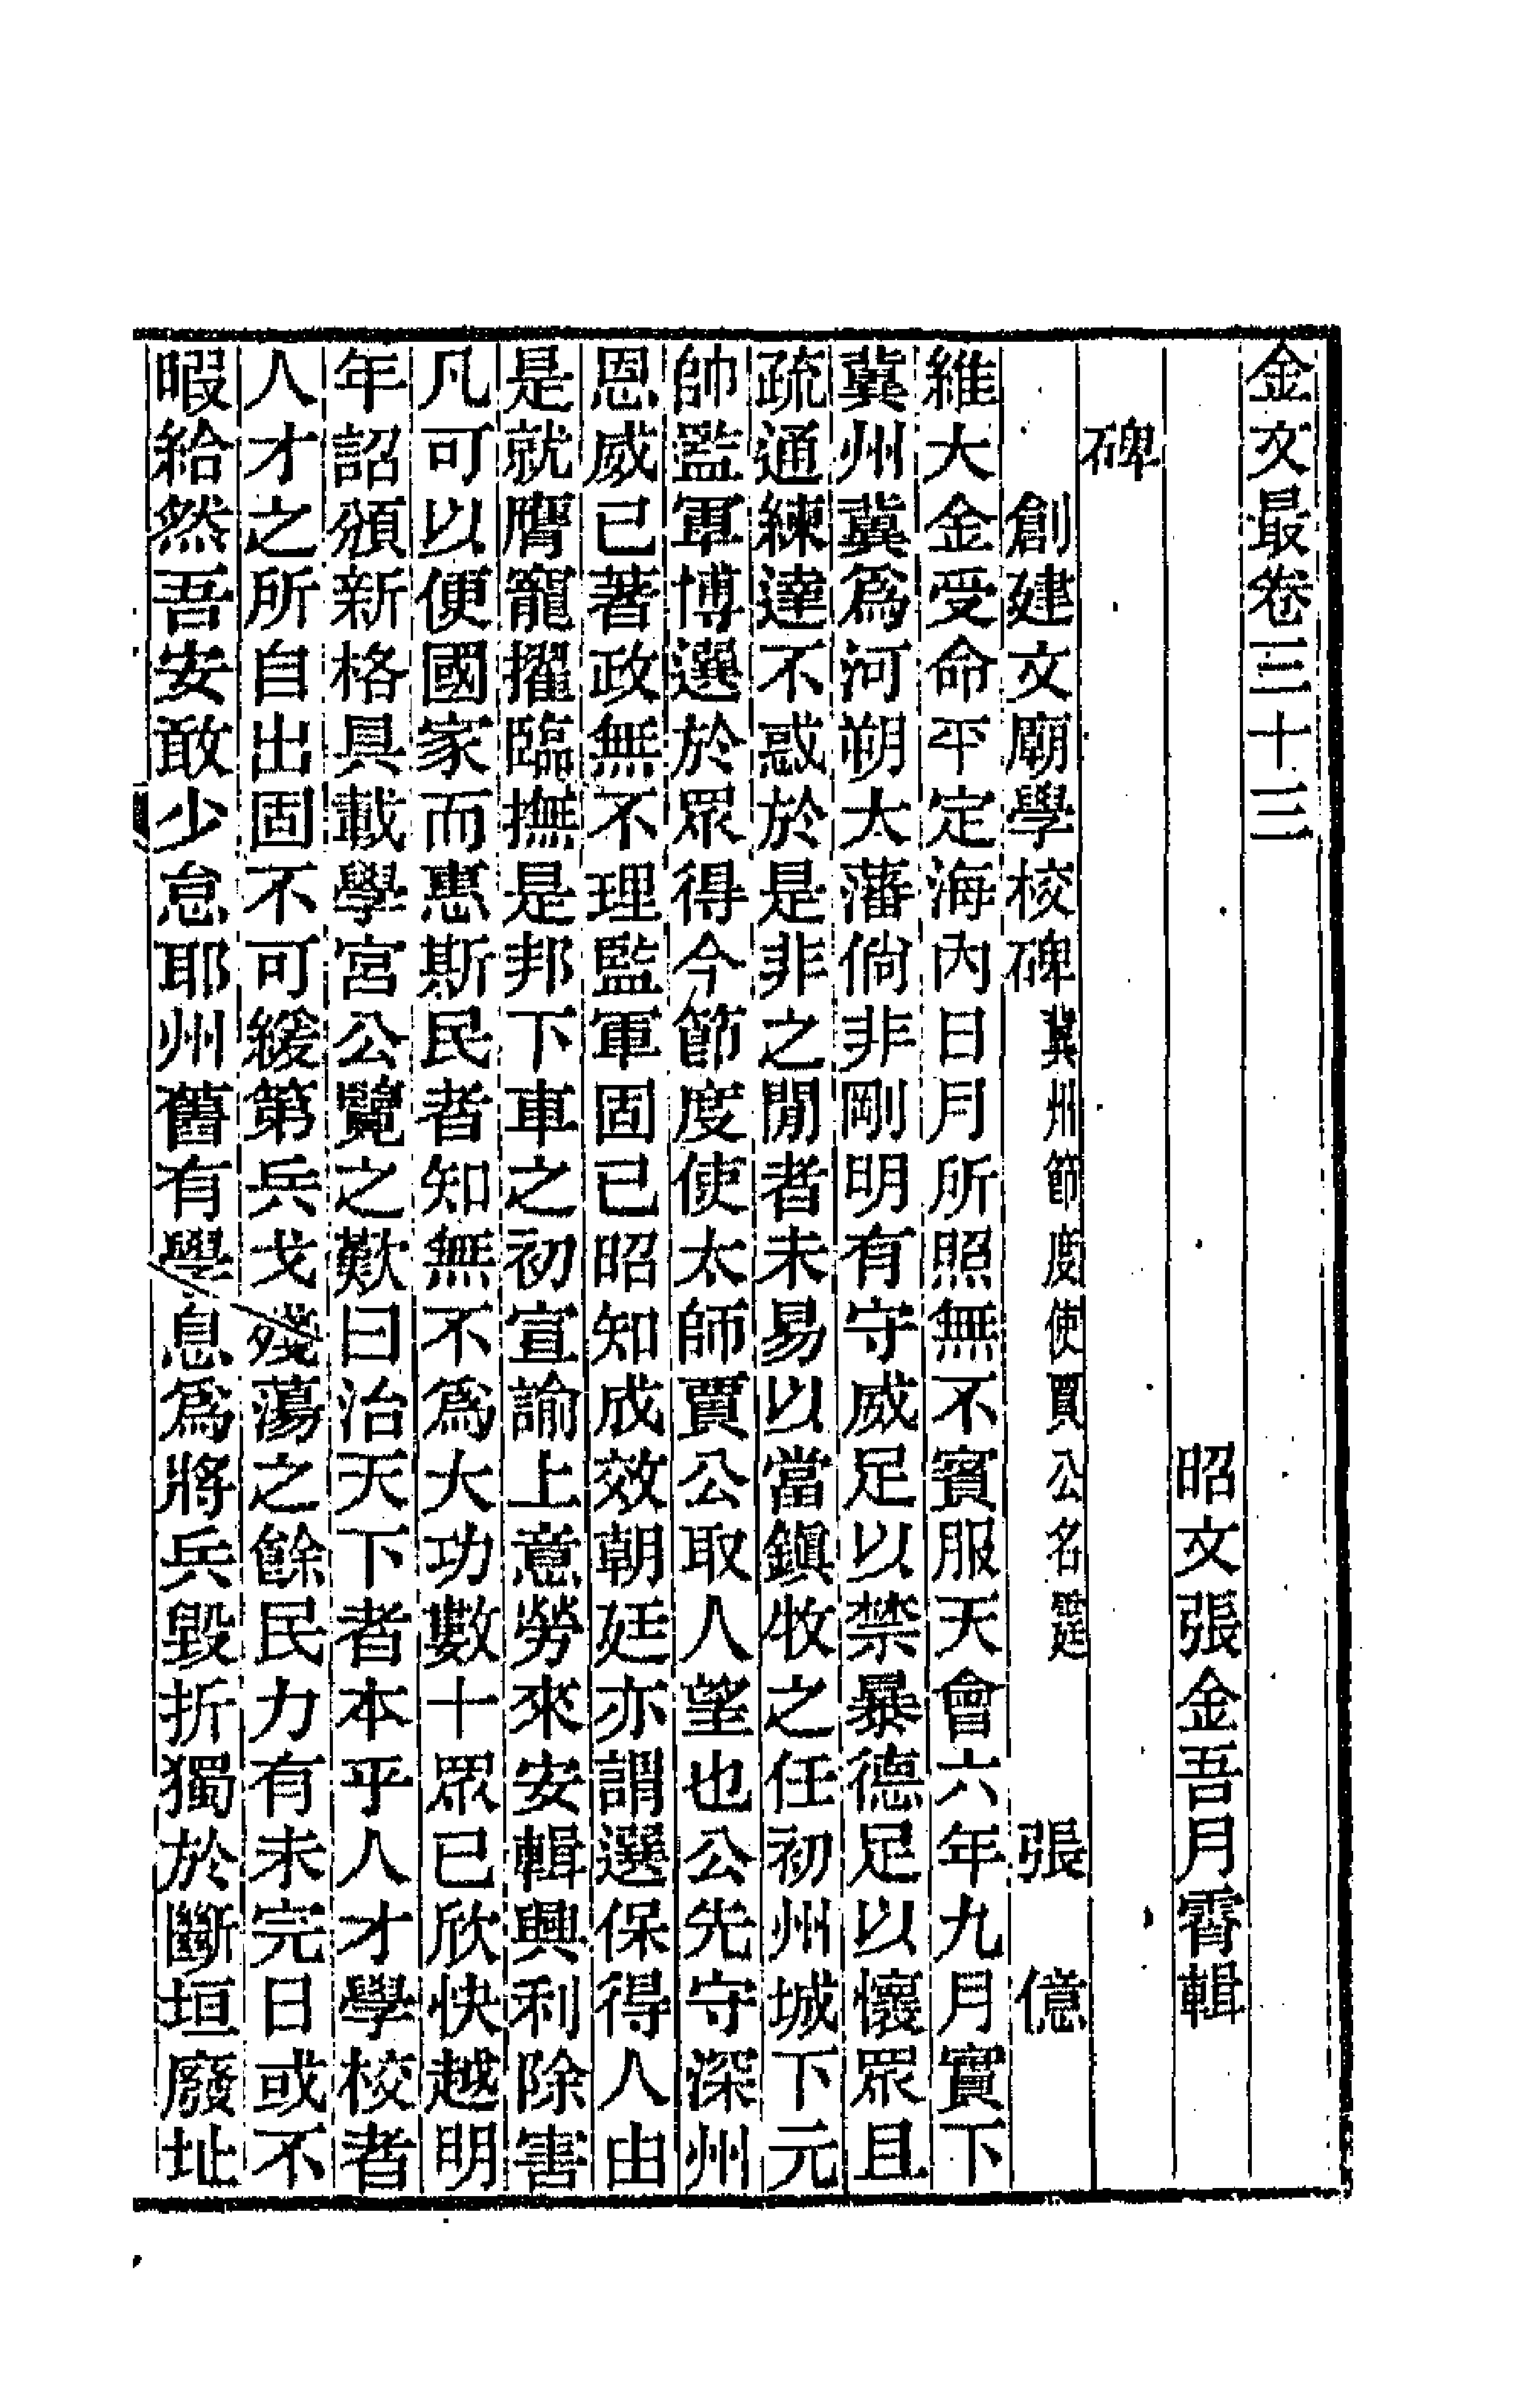 金文最卷三十三
昭文張金吾月霄輯
碑
創建文廟學校碑冀州節度使賈公名霆 張億
維大金受命平定海內日月所照無不賓服天會六年九月實下
冀州冀爲河朔大藩倘非剛明有守威足以禁暴德足以懷眾且
疏通練達不惑於是非之閒者未易以當鎭牧之任初州城下元
帥監軍博選於眾得今節度使太師賈公取人望也公先守深州
恩威已著政無不理監軍固已昭知成效朝廷亦謂選保得人由
是就膺寵擢臨撫是邦下車之初宣諭上意勞來安輯興利除害
凡可以便國家而惠斯民者知無不爲大功數十眾已欣快越明
年詔頒新格具載學宮公覽之歎曰治天下者本乎人才學校者
人才之所自出固不可緩第兵戈殘蕩之餘民力有未完日或不
暇給然吾安敢少怠耶州舊有學息爲將兵毀折獨於斷垣廢址